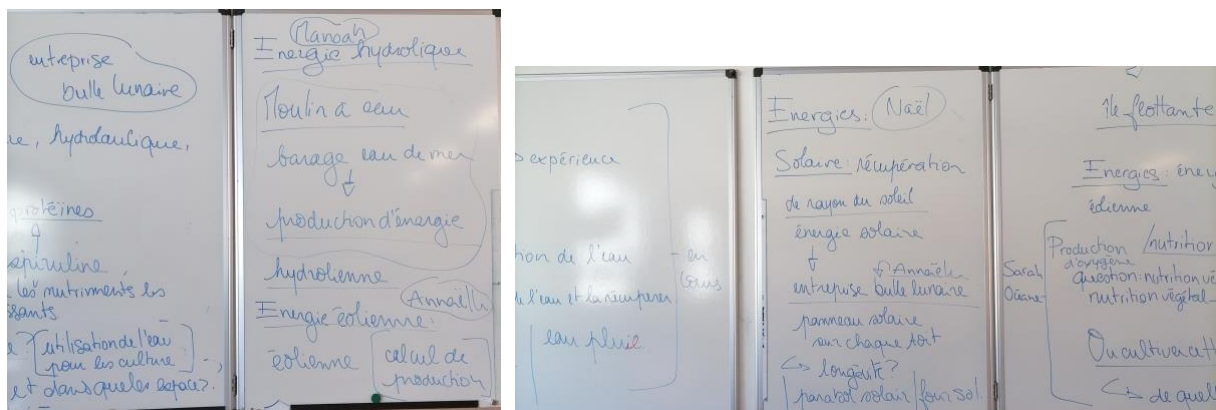 entreprise
bulle lunaire
re, hydraulique,
protéines
spiruline
les nutriments les
ssants
e? utilisation de l'eau
pour les culture,
et dans queles espace?
Manoah
Energie hydrolique
Moulin à eau
barage eau de mer
production d'énergie
hydrolienne
Annaëlle
Energie éolienne:
éolienne
calcul de
production
expérience
tion de l'eau
de l'eau et la récupérer
eau pluie
en
cours
Energies: Naël
Solaire: récupération
de rayon du soleil
énergie solaire
Annaëlle
entreprise bulle lunaire
panneau solaire
sur chaque toit
longévité?
parabol solair four sol.
île flottante
Energies: éner
éolienne
Production /nutrition
d'oxygène
Sarah
Océane
question: nutrition vé
nutrition végétal
Ou cultiver cett
de quel